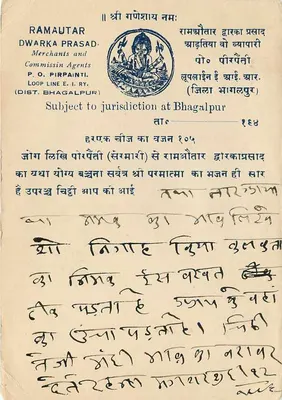 ॥ श्री गणेशाय नमः
RAMAUTAR
DWARKA PRASAD
Merchants and
Commissin Agents
P. O. PIRPAINTI.
LOOP LINE E. I. RY.
(DIST. BHAGALPUR)
रामऔतार द्वारका प्रसाद
आढ़तिया वो व्यापारी
पो० पीरपैंती
लूपलाईन ई. आई. आर.
(जिला भागलपुर)
Subject to jurisdiction at Bhagalpur
ता० १९४
हरएक चीज का वजन १०५
जोग लिखि पीरपैंती (सेरमारी) से रामऔतार द्वारकाप्रसाद
का यथा योग्य बञ्चना सर्वत्र श्री परमात्मा का भजन ही सार
है उपरञ्च चिट्ठी आप की आई तथा
नमक का भाव लिखे
सो निगाह किया कलकता
का निमक इस बखत
ठीक पड़ता है
का उंचा पड़ता है। चिठी
तेजी मंदी भाव का बराबर
देते रहना